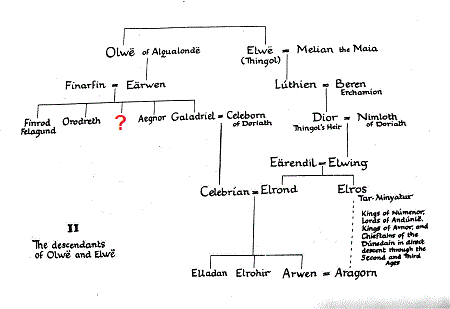 Olwë of Alqualondë Elwë = Melian the Maia
(Thingol)
Finarfin = Eärwen Lúthien = Beren
Erchamion
Finrod Orodreth ? Aegnor Galadriel = Celeborn Dior = Nimloth
Felagund of Doriath Thingol's Heir of Doriath
Eärendil = Elwing
Celebrían = Elrond Elros
Tar-Minyatur
Kings of Númenor,
Lords of Andúnië,
Kings of Arnor, and
Chieftains of the
Dúnedain in direct
descent through the
Second and Third
Ages
II
The descendants
of Olwë and Elwë
Elladan Elrohir Arwen = Aragorn